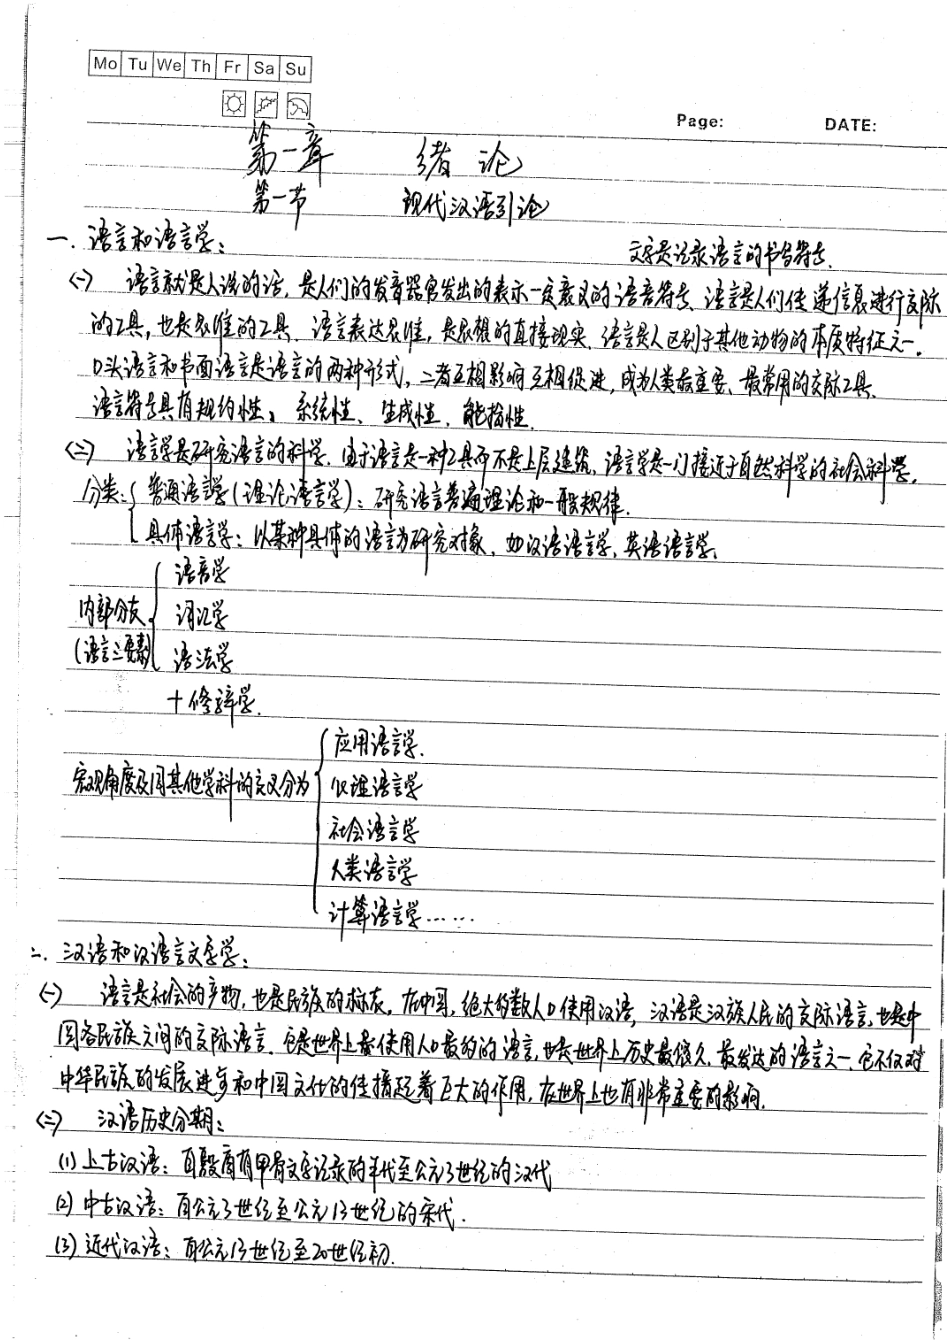 Mo Tu We Th Fr Sa Su
Page: DATE:
第一章 绪论
第一节 现代汉语引论
一. 语言和语言学:
文字是记录语言的书写符号.
(一) 语言就是人说的话, 是人们的发音器官发出的表示一定意义的语音符号. 语言是人们传递信息进行交际
的工具, 也是思维的工具. 语言表达思维, 是思想的直接现实. 语言是人区别于其他动物的本质特征之一.
口头语言和书面语言是语言的两种形式, 二者互相影响互相促进, 成为人类最重要、最常用的交际工具.
语言符号具有规约性、系统性、生成性、能指性.
(二) 语言学是研究语言的科学. 由于语言是一种工具而不是上层建筑, 语言学是一门接近于自然科学的社会科学.
分类: 普通语言学(理论语言学): 研究语言普遍理论和一般规律.
具体语言学: 以某种具体的语言为研究对象, 如汉语语言学, 英语语言学.
语音学
内部分支 词汇学
(语言三要素) 语法学
+修辞学.
应用语言学.
宏观角度及同其他学科的交叉分为 心理语言学
社会语言学
人类语言学
计算语言学……
二. 汉语和汉语言文字学:
(一) 语言是社会的产物, 也是民族的标志. 在中国, 绝大多数人口使用汉语, 汉语是汉族人民的交际语言, 也是中
国各民族之间的交际语言. 它是世界上使用人口最多的语言, 也是世界上历史最悠久、最发达的语言之一. 它不仅对
中华民族的发展进步和中国文化的传播起着巨大的作用, 在世界上也有非常重要的影响.
(二) 汉语历史分期:
(1) 上古汉语: 自殷商有甲骨文字记录的年代至公元3世纪的汉代
(2) 中古汉语: 自公元3世纪至公元13世纪的宋代.
(3) 近代汉语: 自公元13世纪至20世纪初.